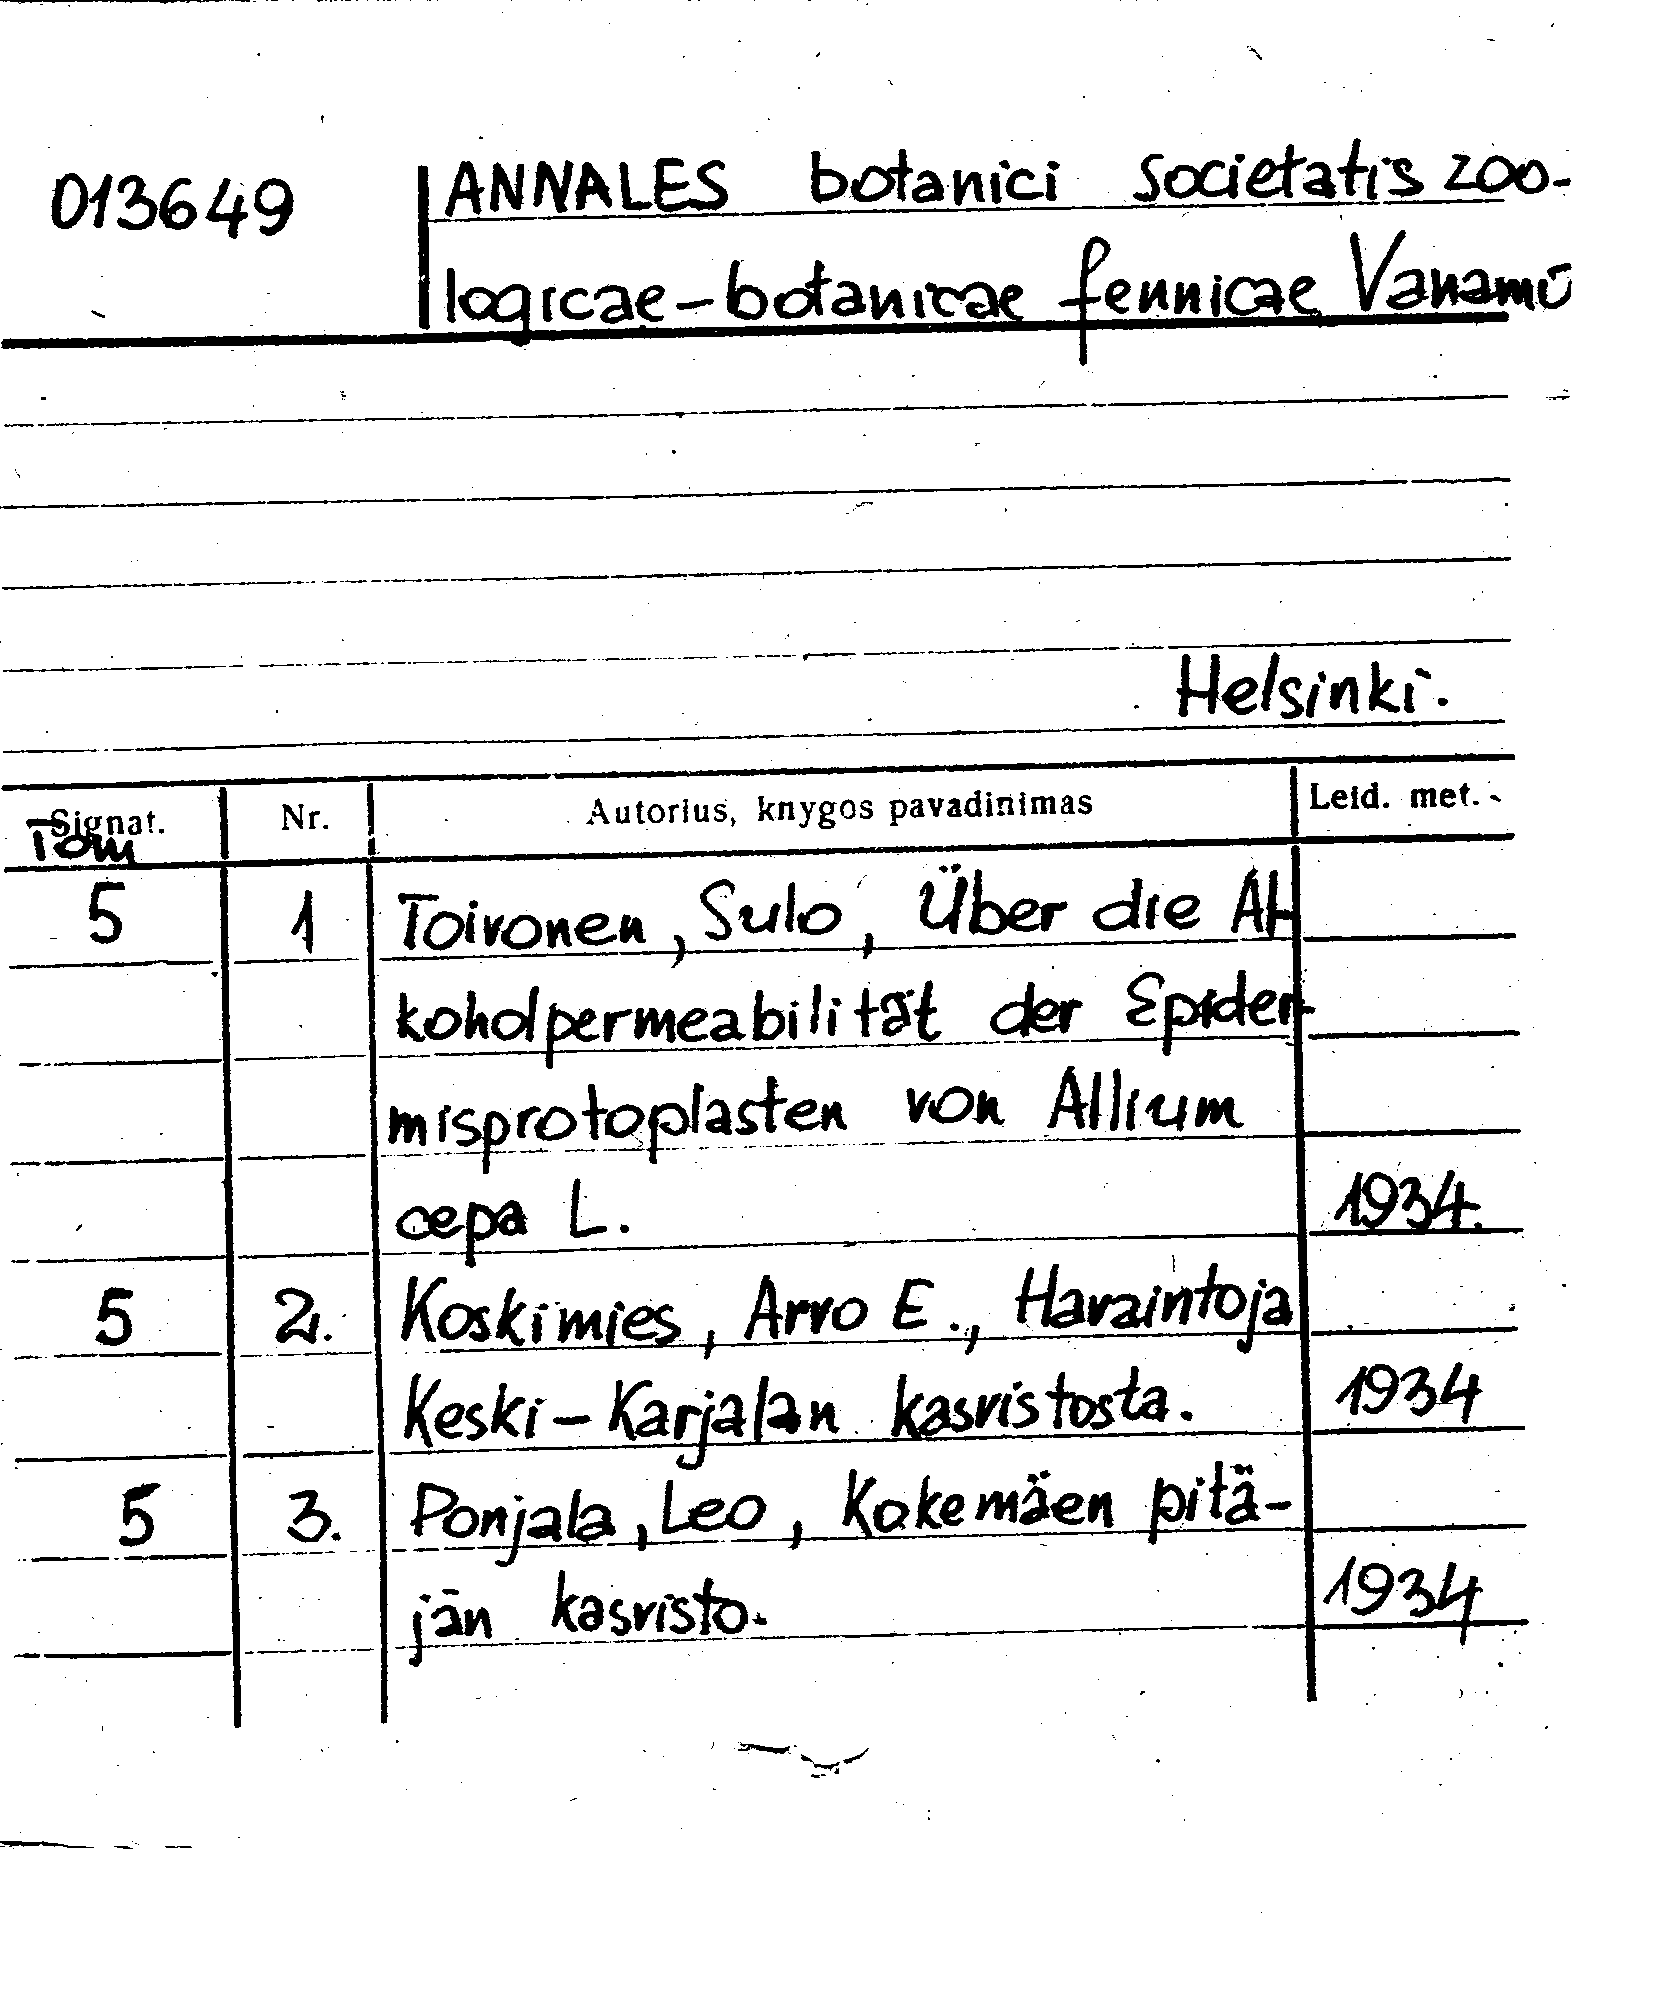 013649 ANNALES botanici societatis zoo-
logicae-botanicae fennicae Vanamo
Helsinki.
Signat. Nr. Autorius, knygos pavadinimas Leid. met.
Tom
5 1 Toivonen, Sulo, Über die Al-
koholpermeabilität der Epider-
misprotoplasten von Allium
cepa L. 1934.
5 2. Koskimies, Arvo E., Havaintoja
Keski-Karjalan kasvistosta. 1934
5 3. Ponjala, Leo, Kokemäen pitä-
jän kasvisto. 1934